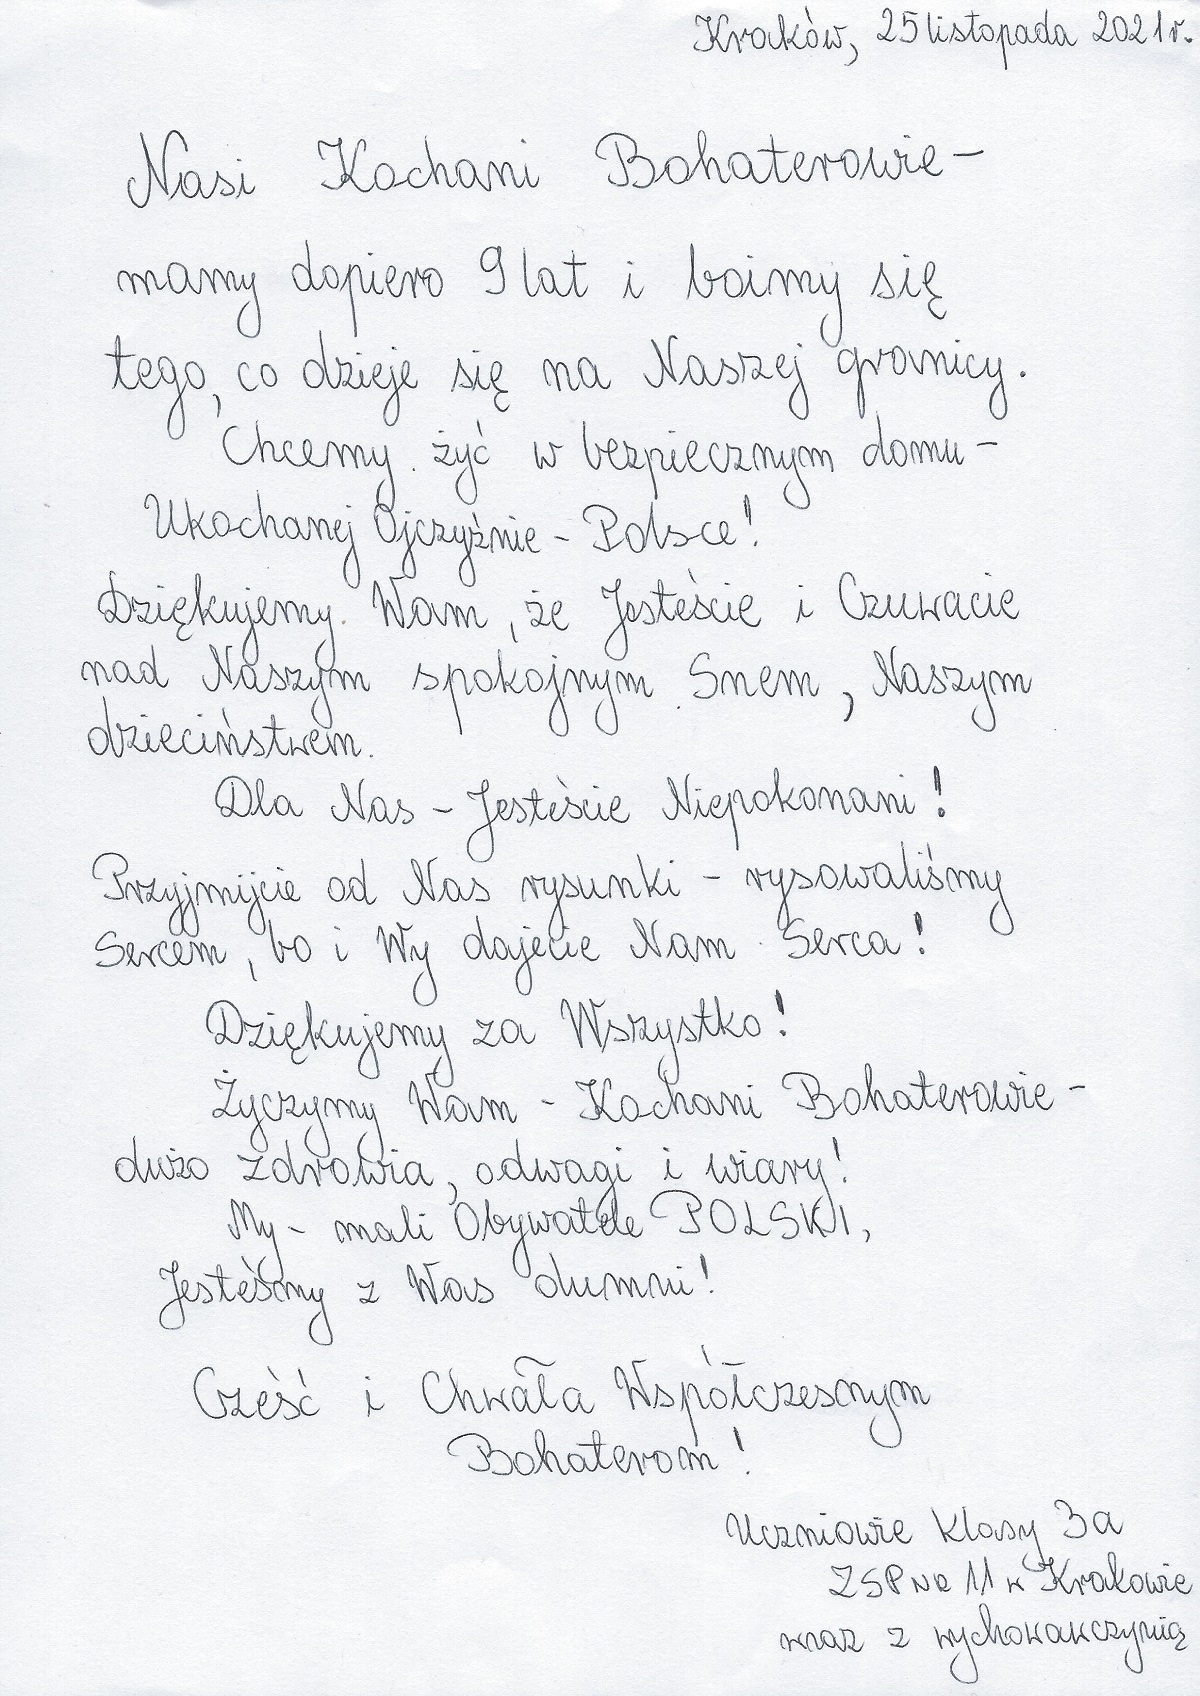 Kraków, 25 listopada 2021r.
Nasi Kochani Bohaterowie -
mamy dopiero 9 lat i boimy się
tego, co dzieje się na Naszej granicy.
Chcemy żyć w bezpiecznym domu -
Ukochanej Ojczyźnie - Polsce!
Dziękujemy Wam, że Jesteście i Czuwacie
nad Naszym spokojnym Snem, Naszym
dzieciństwem.
Dla Nas - Jesteście Niepokonani!
Przyjmijcie od Nas rysunki - rysowaliśmy
Sercem, bo i Wy dajecie Nam Serca!
Dziękujemy za Wszystko!
Życzymy Wam - Kochani Bohaterowie -
dużo zdrowia, odwagi i wiary!
My - mali Obywatele POLSKI,
Jesteśmy z Was dumni!
Cześć i Chwała Współczesnym
Bohaterom!
Uczniowie klasy 3a
ZSP nr 11 w Krakowie
wraz z wychowawczynią